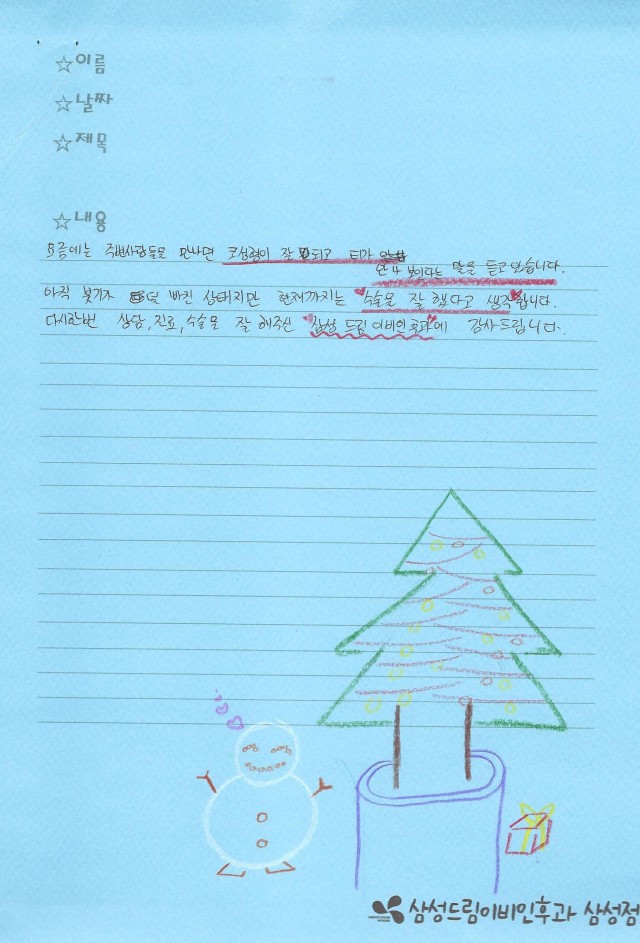 ☆이름
☆날짜
☆제목
☆내용
요즘에는 주변사람들을 만나면 코성형이 잘 되고 티가
안나 보인다는 말을 듣고 있습니다.
아직 붓기가 덜 빠진 상태지만 현재까지는 수술을 잘 했다고 생각합니다.
다시한번 상담, 진료, 수술을 잘 해주신 "삼성드림이비인후과"에 감사드립니다.
삼성드림이비인후과 삼성점